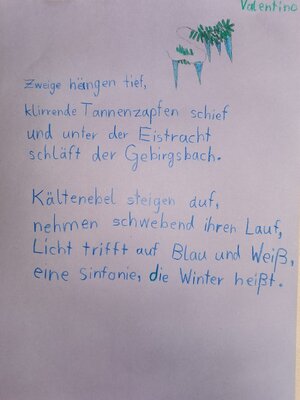 Valentino
Zweige hängen tief,
klirrende Tannenzapfen schief
und unter der Eistracht
schläft der Gebirgsbach.
Kältenebel steigen auf,
nehmen schwebend ihren Lauf,
Licht trifft auf Blau und Weiß,
eine Sinfonie, die Winter heißt.